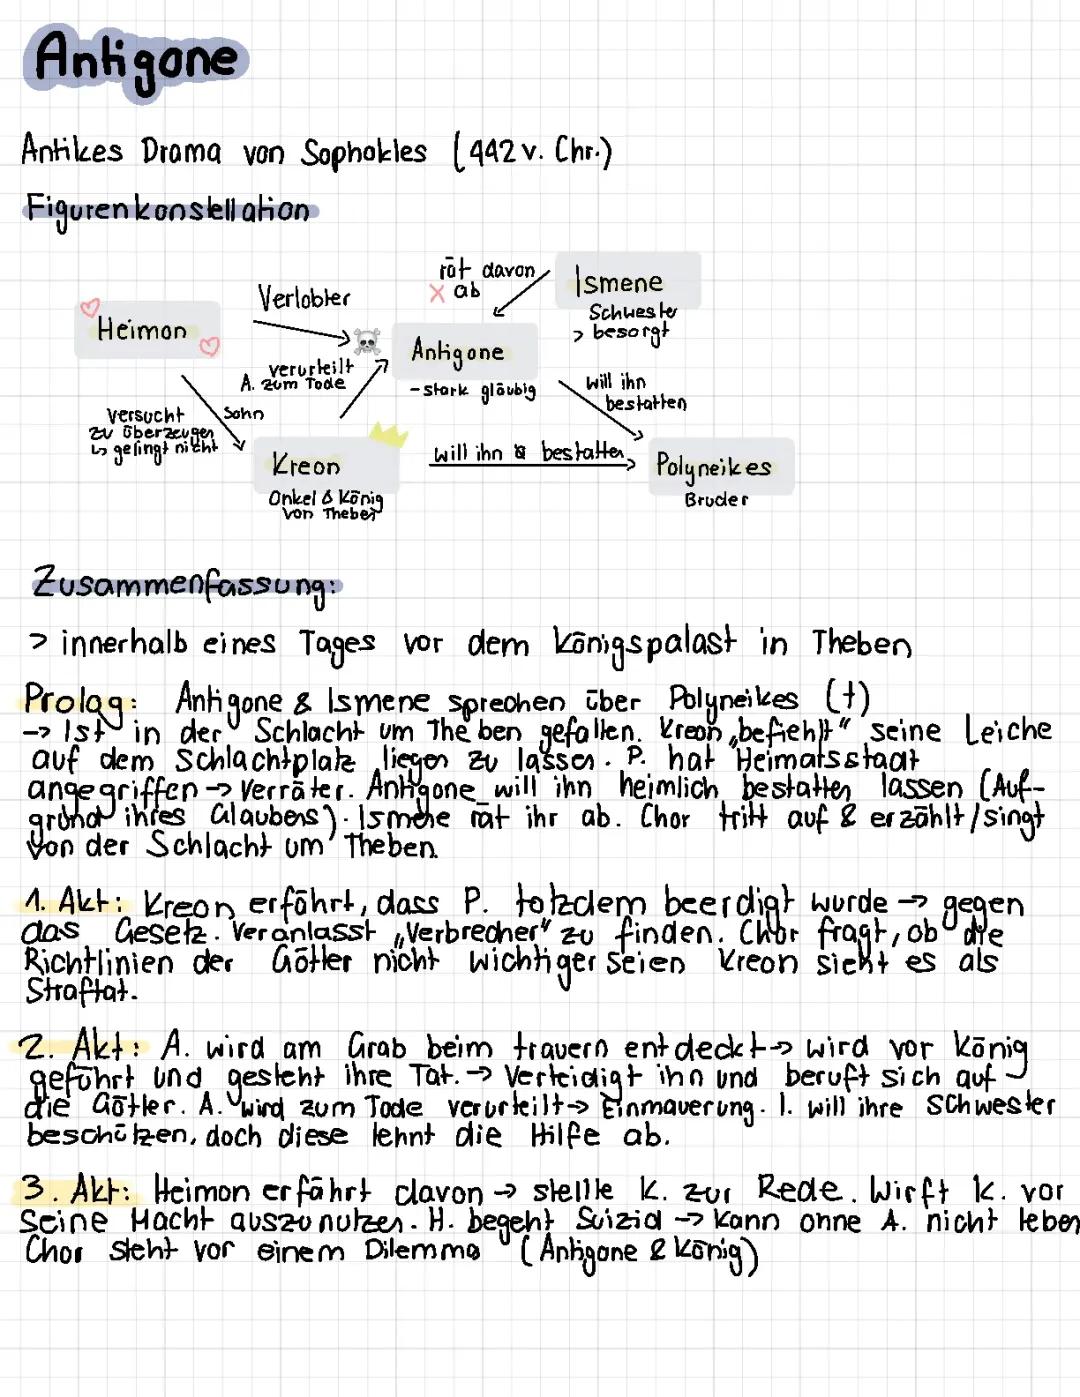 Antigone
Antikes Drama von Sophokles (442 v. Chr.)
Figurenkonstellation
rät davon
X ab
Ismene
Schwester
> besorgt
Verlobter
Heimon
Antigone
- stark gläubig
verurteilt
A. zum Tode
will ihn
bestatten
versucht
zu überzeugen
↳ gelingt nicht
Sohn
Kreon
Onkel & König
von Theben
will ihn bestatten
Polyneikes
Bruder
Zusammenfassung:
> innerhalb eines Tages vor dem Königspalast in Theben
Prolog: Antigone & Ismene sprechen über Polyneikes (†)
-> Ist in der Schlacht um Theben gefallen. Kreon „befiehlt“ seine Leiche
auf dem Schlachtplatz liegen zu lassen. P. hat Heimatsstadt
angegriffen -> Verräter. Antigone will ihn heimlich bestatten lassen (Auf-
grund ihres Glaubens). Ismene rät ihr ab. Chor tritt auf & erzählt/singt
von der Schlacht um Theben.
1. Akt: Kreon erfährt, dass P. totzdem beerdigt wurde -> gegen
das Gesetz. Veranlasst „Verbrecher“ zu finden. Chor fragt, ob die
Richtlinien der Götter nicht wichtiger seien Kreon sieht es als
Straftat.
2. Akt: A. wird am Grab beim trauern entdeckt -> wird vor König
geführt und gesteht ihre Tat. -> Verteidigt ihn und beruft sich auf
die Götter. A. wird zum Tode verurteilt -> Einmauerung. I. will ihre Schwester
beschützen, doch diese lehnt die Hilfe ab.
3. Akt: Heimon erfährt davon -> stellte K. zur Rede. Wirft K. vor
seine Macht auszunutzen. H. begeht Suizid -> kann ohne A. nicht leben
Chor steht vor einem Dilemma (Antigone & König)